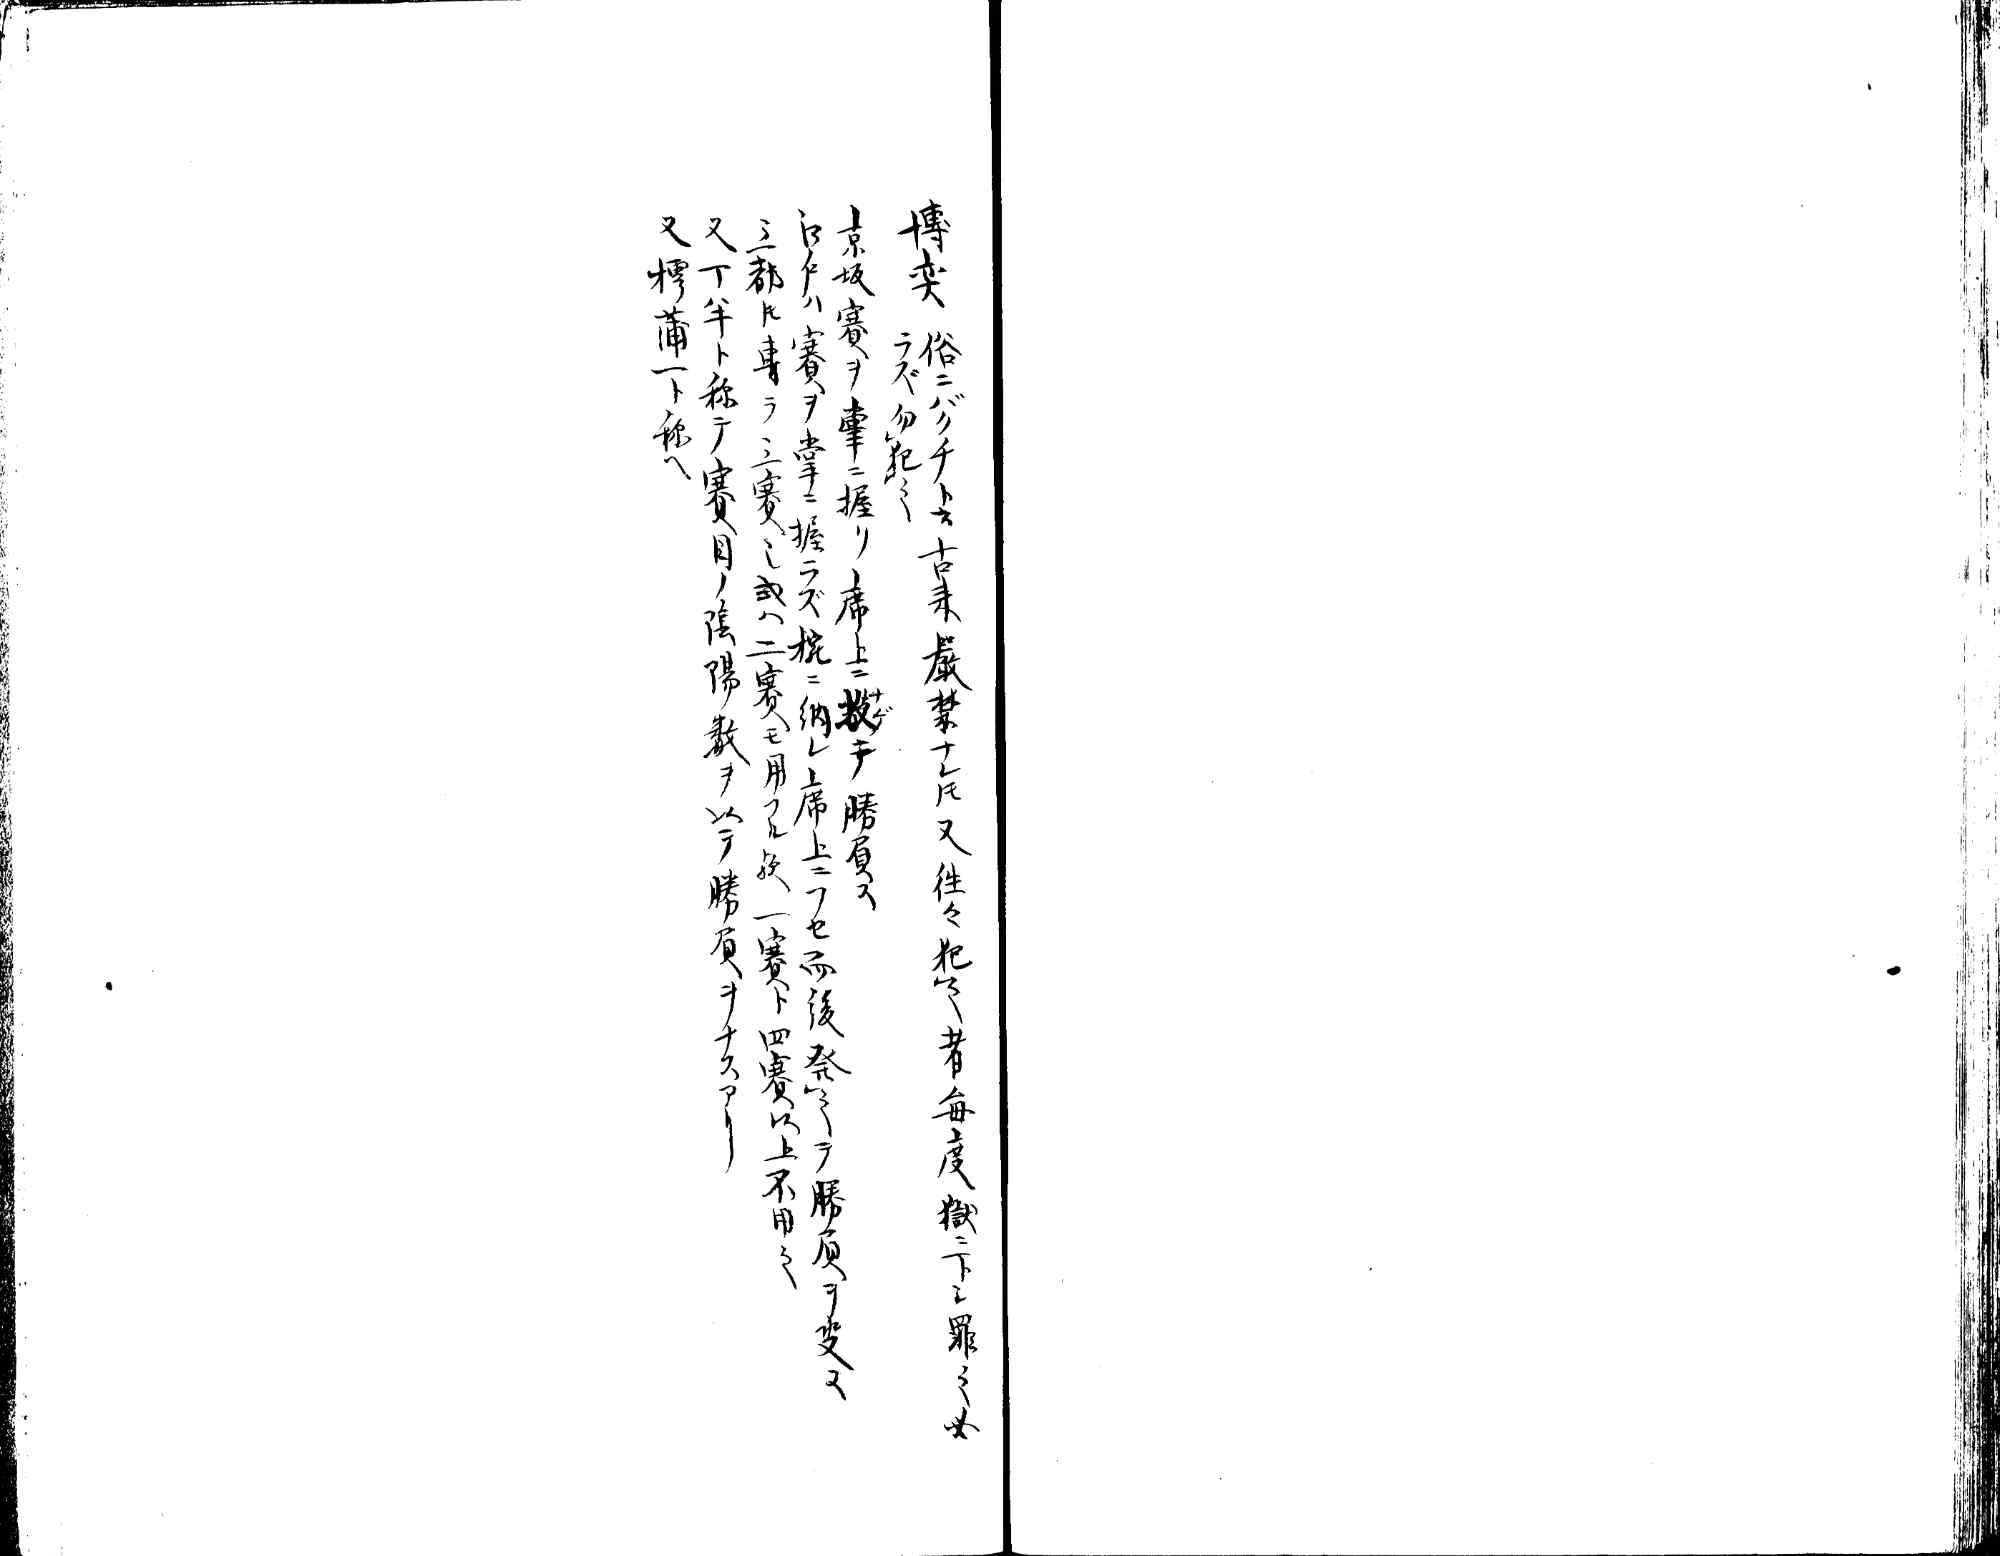 博奕 俗ニバクチト云古来厳禁ナレ𪜈又往々犯之者毎度獄ニ下シ罪之必
ラズ勿犯之
京坂賽ヲ掌ニ握リ席上ニ投テ勝負ス
ナゲ
江戸ハ賽ヲ掌ニ握ラズ椀ニ納レ席上ニフセ而後発之テ勝負ヲ
三都𪜈専ラ三賽也或ハ二賽モ用フル歟一賽ト四賽以上不用之
又丁半ト称テ賽目ノ陰陽数ヲ以テ勝負ヲナスアリ
又樗蒲一ト称ヘ